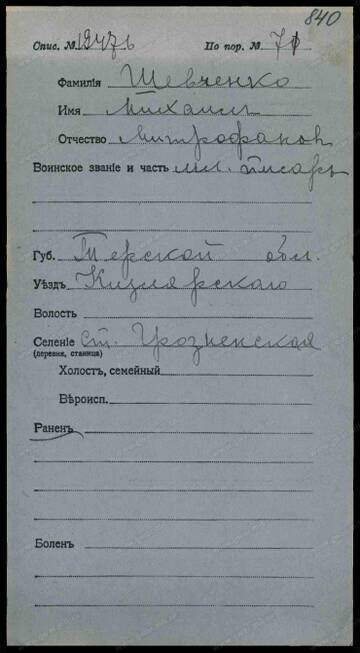 840
Спис. № 12476 По пор. № 71
Фамилія Шевченко
Имя Михаилъ
Отчество Митрофанов
Воинское званіе и часть мл. писарь
Губ. Терской обл.
Уѣздъ Кизлярскаго
Волость
Селеніе Ст. Грозненская
(деревня, станица)
Холостъ, семейный
Вѣроисп.
Раненъ
Боленъ